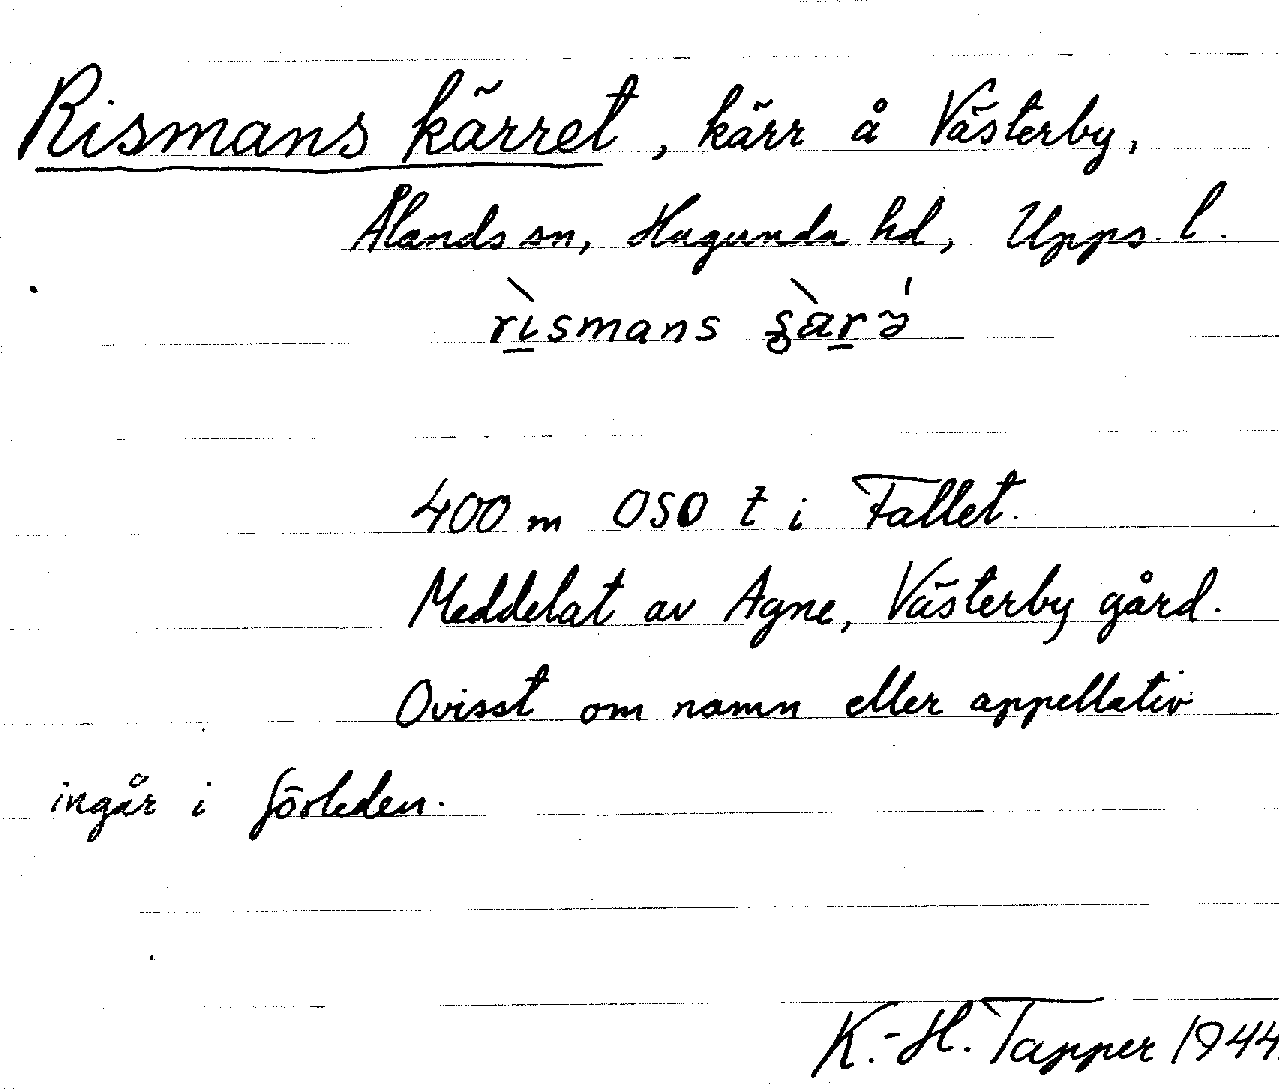 Rismans kärret, kärr å Västerby,
Ålands sn, Hagunda hd, Upps. l.
rìsmans
400 m OSO t i Fallet.
Meddelat av Agne, Västerby gård.
Ovisst om namn eller appellativ
ingår i förleden.
K.-H. Tapper 1944.